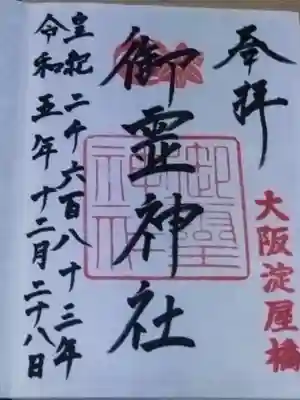 奉拝
大阪淀屋橋
御霊神社
皇紀二千六百八十三年
令和五年十二月二十八日